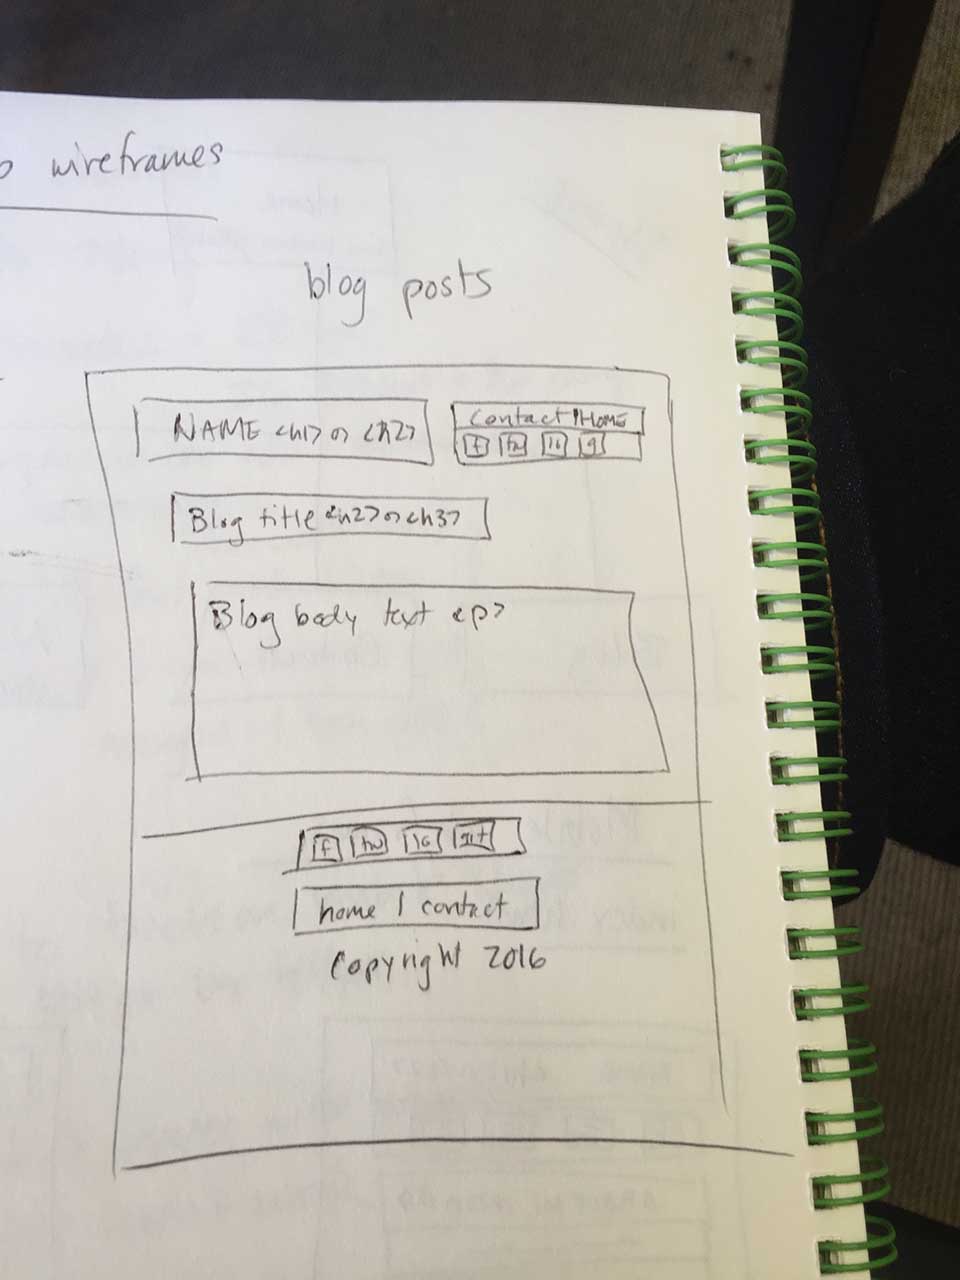 wireframes
blog posts
NAME <h1> or <h2>
contact | HOME
f tw IG g
Blog title <h2> or <h3>
Blog body text <p>
f tw IG git
home | contact
copyright 2016